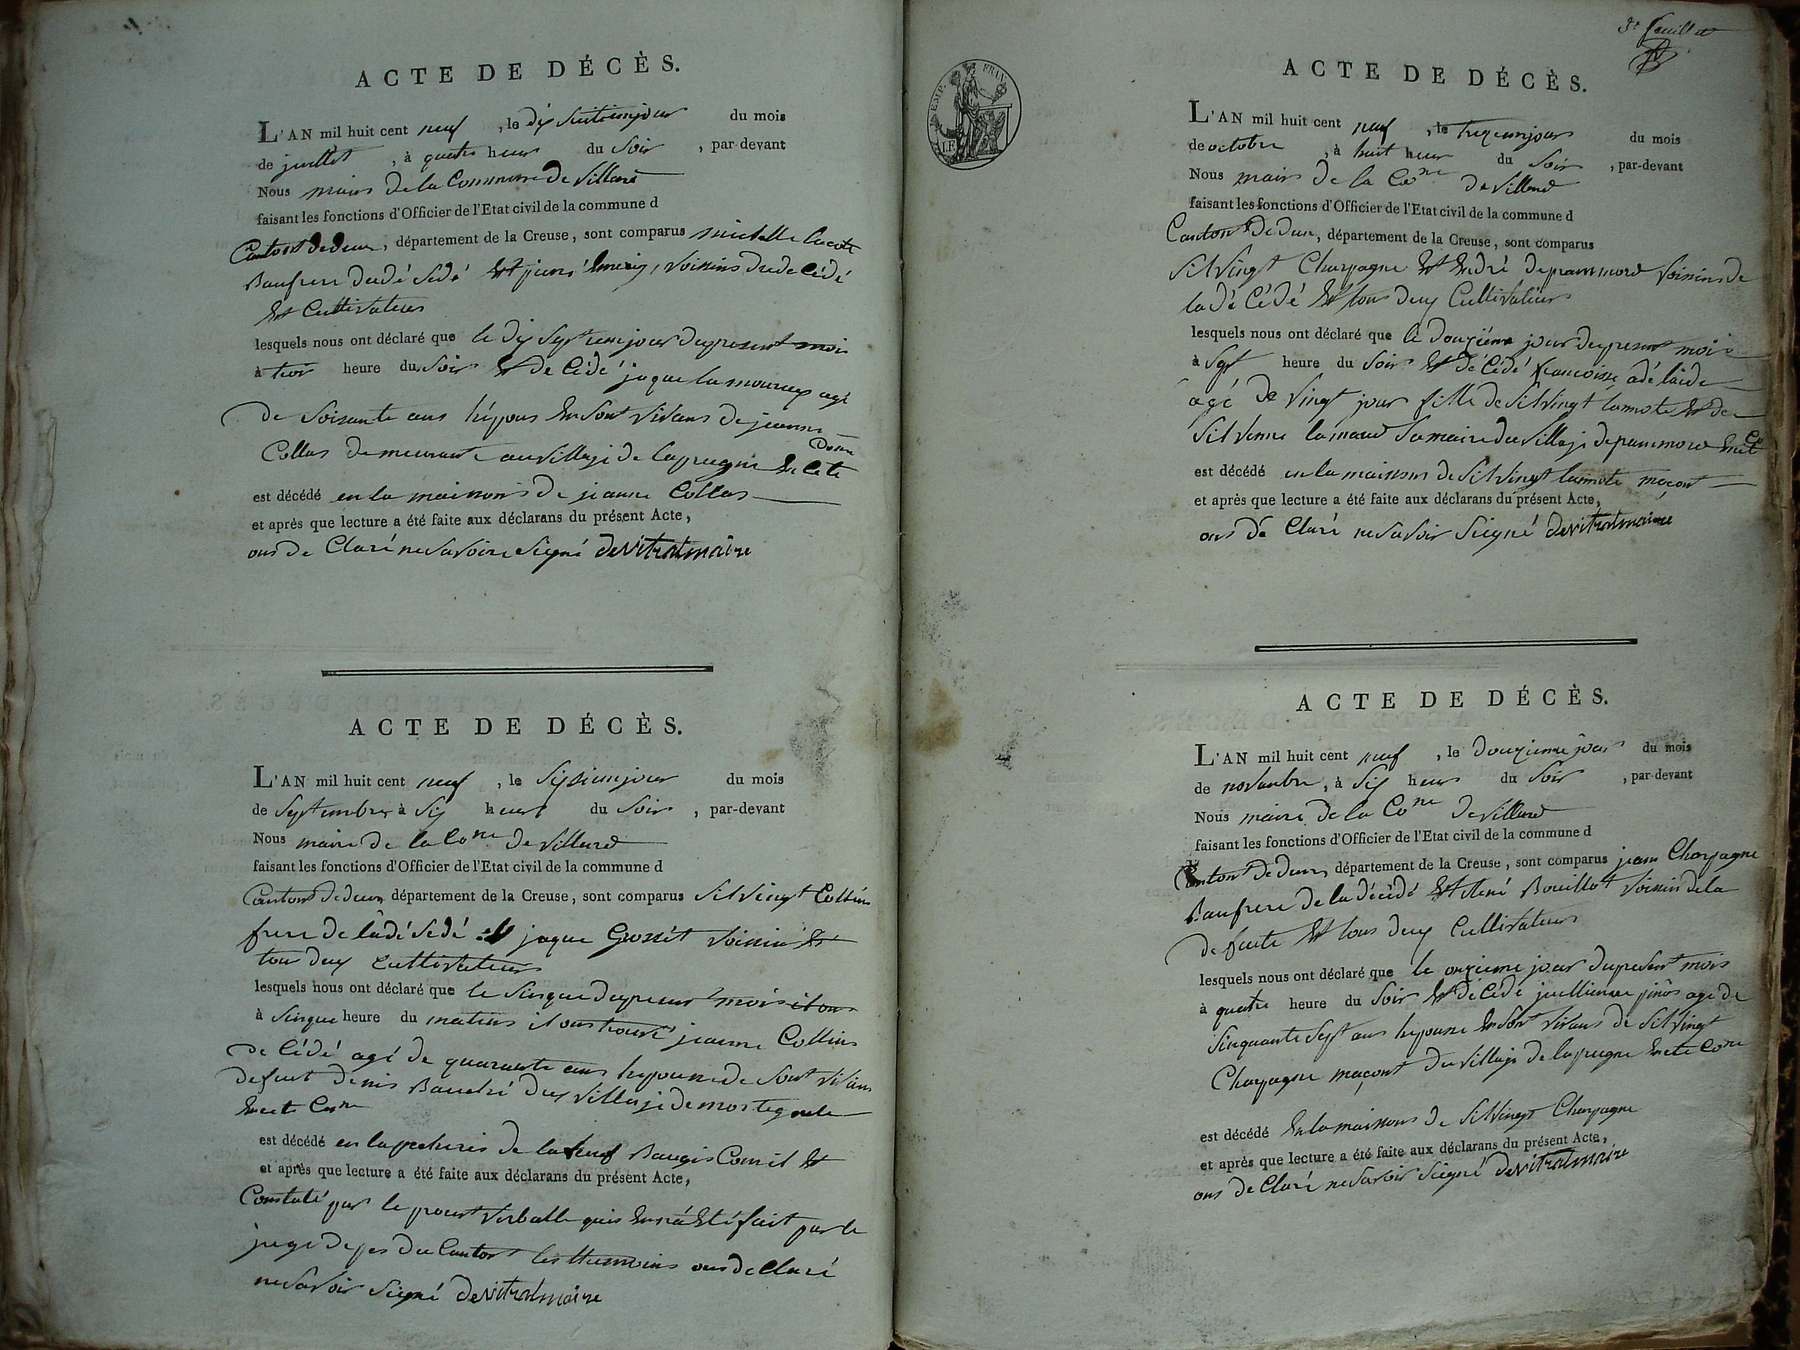 ACTE DE DÉCÈS.
L'AN mil huit cent neuf , le dix huitiemjour du mois
de juillet , à quatre heur du soir , par-devant
Nous maire de la Commune de villard
faisant les fonctions d'Officier de l'Etat civil de la commune d
Canton de dun, département de la Creuse, sont comparus michelle
Baufrere dudé sédé Et voisins dudecédé
Et Cultivateurs
lesquels nous ont déclaré que le dix septiemjour dupresent mois
à troi heure du soir Et de Cédé jaque lamoureux agé
de soixante ans hépous En sont vivans de jeanne
Collas demeurant au villaje de lapeugne En Cete Comne
est décédé en la maisons de jeanne Collas
et après que lecture a été faite aux déclarans du présent Acte,
ons de Claré ne savoire signé devitralmaire
ACTE DE DÉCÈS.
L'AN mil huit cent neuf , le sixiemjour du mois
de septembre à six heurs du soir , par-devant
Nous maire de la Cone de villard
faisant les fonctions d'Officier de l'Etat civil de la commune d
Canton de dun département de la Creuse, sont comparus silvingt Collins
frere de ladé sédé Et jaque Grosset voisin Et
tou deux Cultivateurs
lesquels nous ont déclaré que le sinque dupresent mois
à sinque heure du matins il ons trouvé jeanne Collins
de Cédé agé de quarante ans hepouse de sont vivans
defunt denis du villaje de
En cete Cone
est décédé en la de la
et après que lecture a été faite aux déclarans du présent Acte,
Constaté par le verballe quis En na Eté fait par le
juge depes du Canton les temoins ons de Claré
ne savoir signé devitralmaire
3e feuillet
EMP. FRAN.
ACTE DE DÉCÈS.
L'AN mil huit cent neuf , le trezemjour du mois
de octobre , à huit heur du soir , par-devant
Nous maire de la Cone de villard
faisant les fonctions d'Officier de l'Etat civil de la commune d
Canton de dun, département de la Creuse, sont comparus
silvingt Charpagne Et André voisins de
la dé Cédé Et tous deux Cultivateurs
lesquels nous ont déclaré que le douzième jour dupresent mois
à sept heure du soir Et dé Cédé francoisse adélaide
agé de vingt jour fille de silvingt lamote Et de
silvenne lamaud sa maire du villaje En cet Co
est décédé en la maisons de silvingt lamote maçont
et après que lecture a été faite aux déclarans du présent Acte,
ons dé Claré ne savoir signé devitralmaire
ACTE DE DÉCÈS.
L'AN mil huit cent neuf , le douziemejour du mois
de novanbre, à six heur du soir , par-devant
Nous maire de la Cone de villard
faisant les fonctions d'Officier de l'Etat civil de la commune d
Canton de dun, département de la Creuse, sont comparus jean Charpagne
Baufrere de la décédé Et René Bouillot voisin de la
defunte Et tous deux Cultivateurs
lesquels nous ont déclaré que le onzieme jour dupresent mois
à quatre heure du soir Et de Cédé juellienne agé de
sinquante sept ans hepouse En sont vivans de silvingt
Charpagne maçont du villaje de lapeugne En cete Cone
est décédé En la maisons de silvingt Charpagne
et après que lecture a été faite aux déclarans du présent Acte,
ons de Claré ne savoir signé devitralmaire